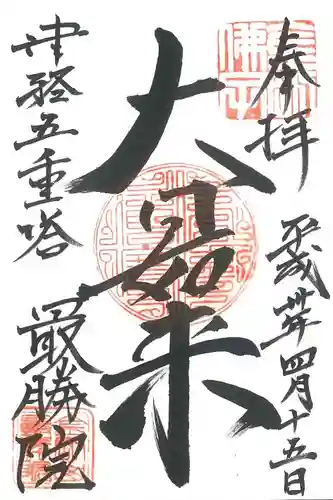 奉拝
平成廿年四月十五日
大日如来
津軽五重塔
最勝院